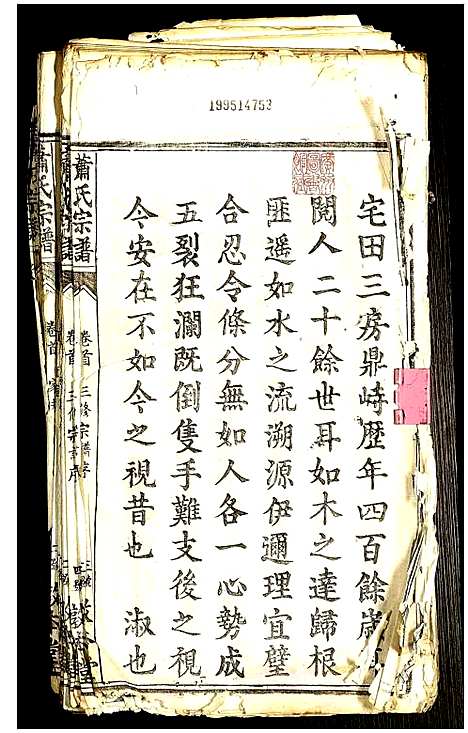 199514753
宅田三房鼎峙歷年四百餘歲
閱人二十餘世耳如木之達歸根
匪遥如水之流溯源伊邇理宜璧
合忍令條分無如人各一心勢成
五裂狂瀾既倒隻手難支後之視
今安在不如今之視昔也　淑也
蕭氏宗譜
卷首
三修宗譜序
蕭氏宗譜
卷首